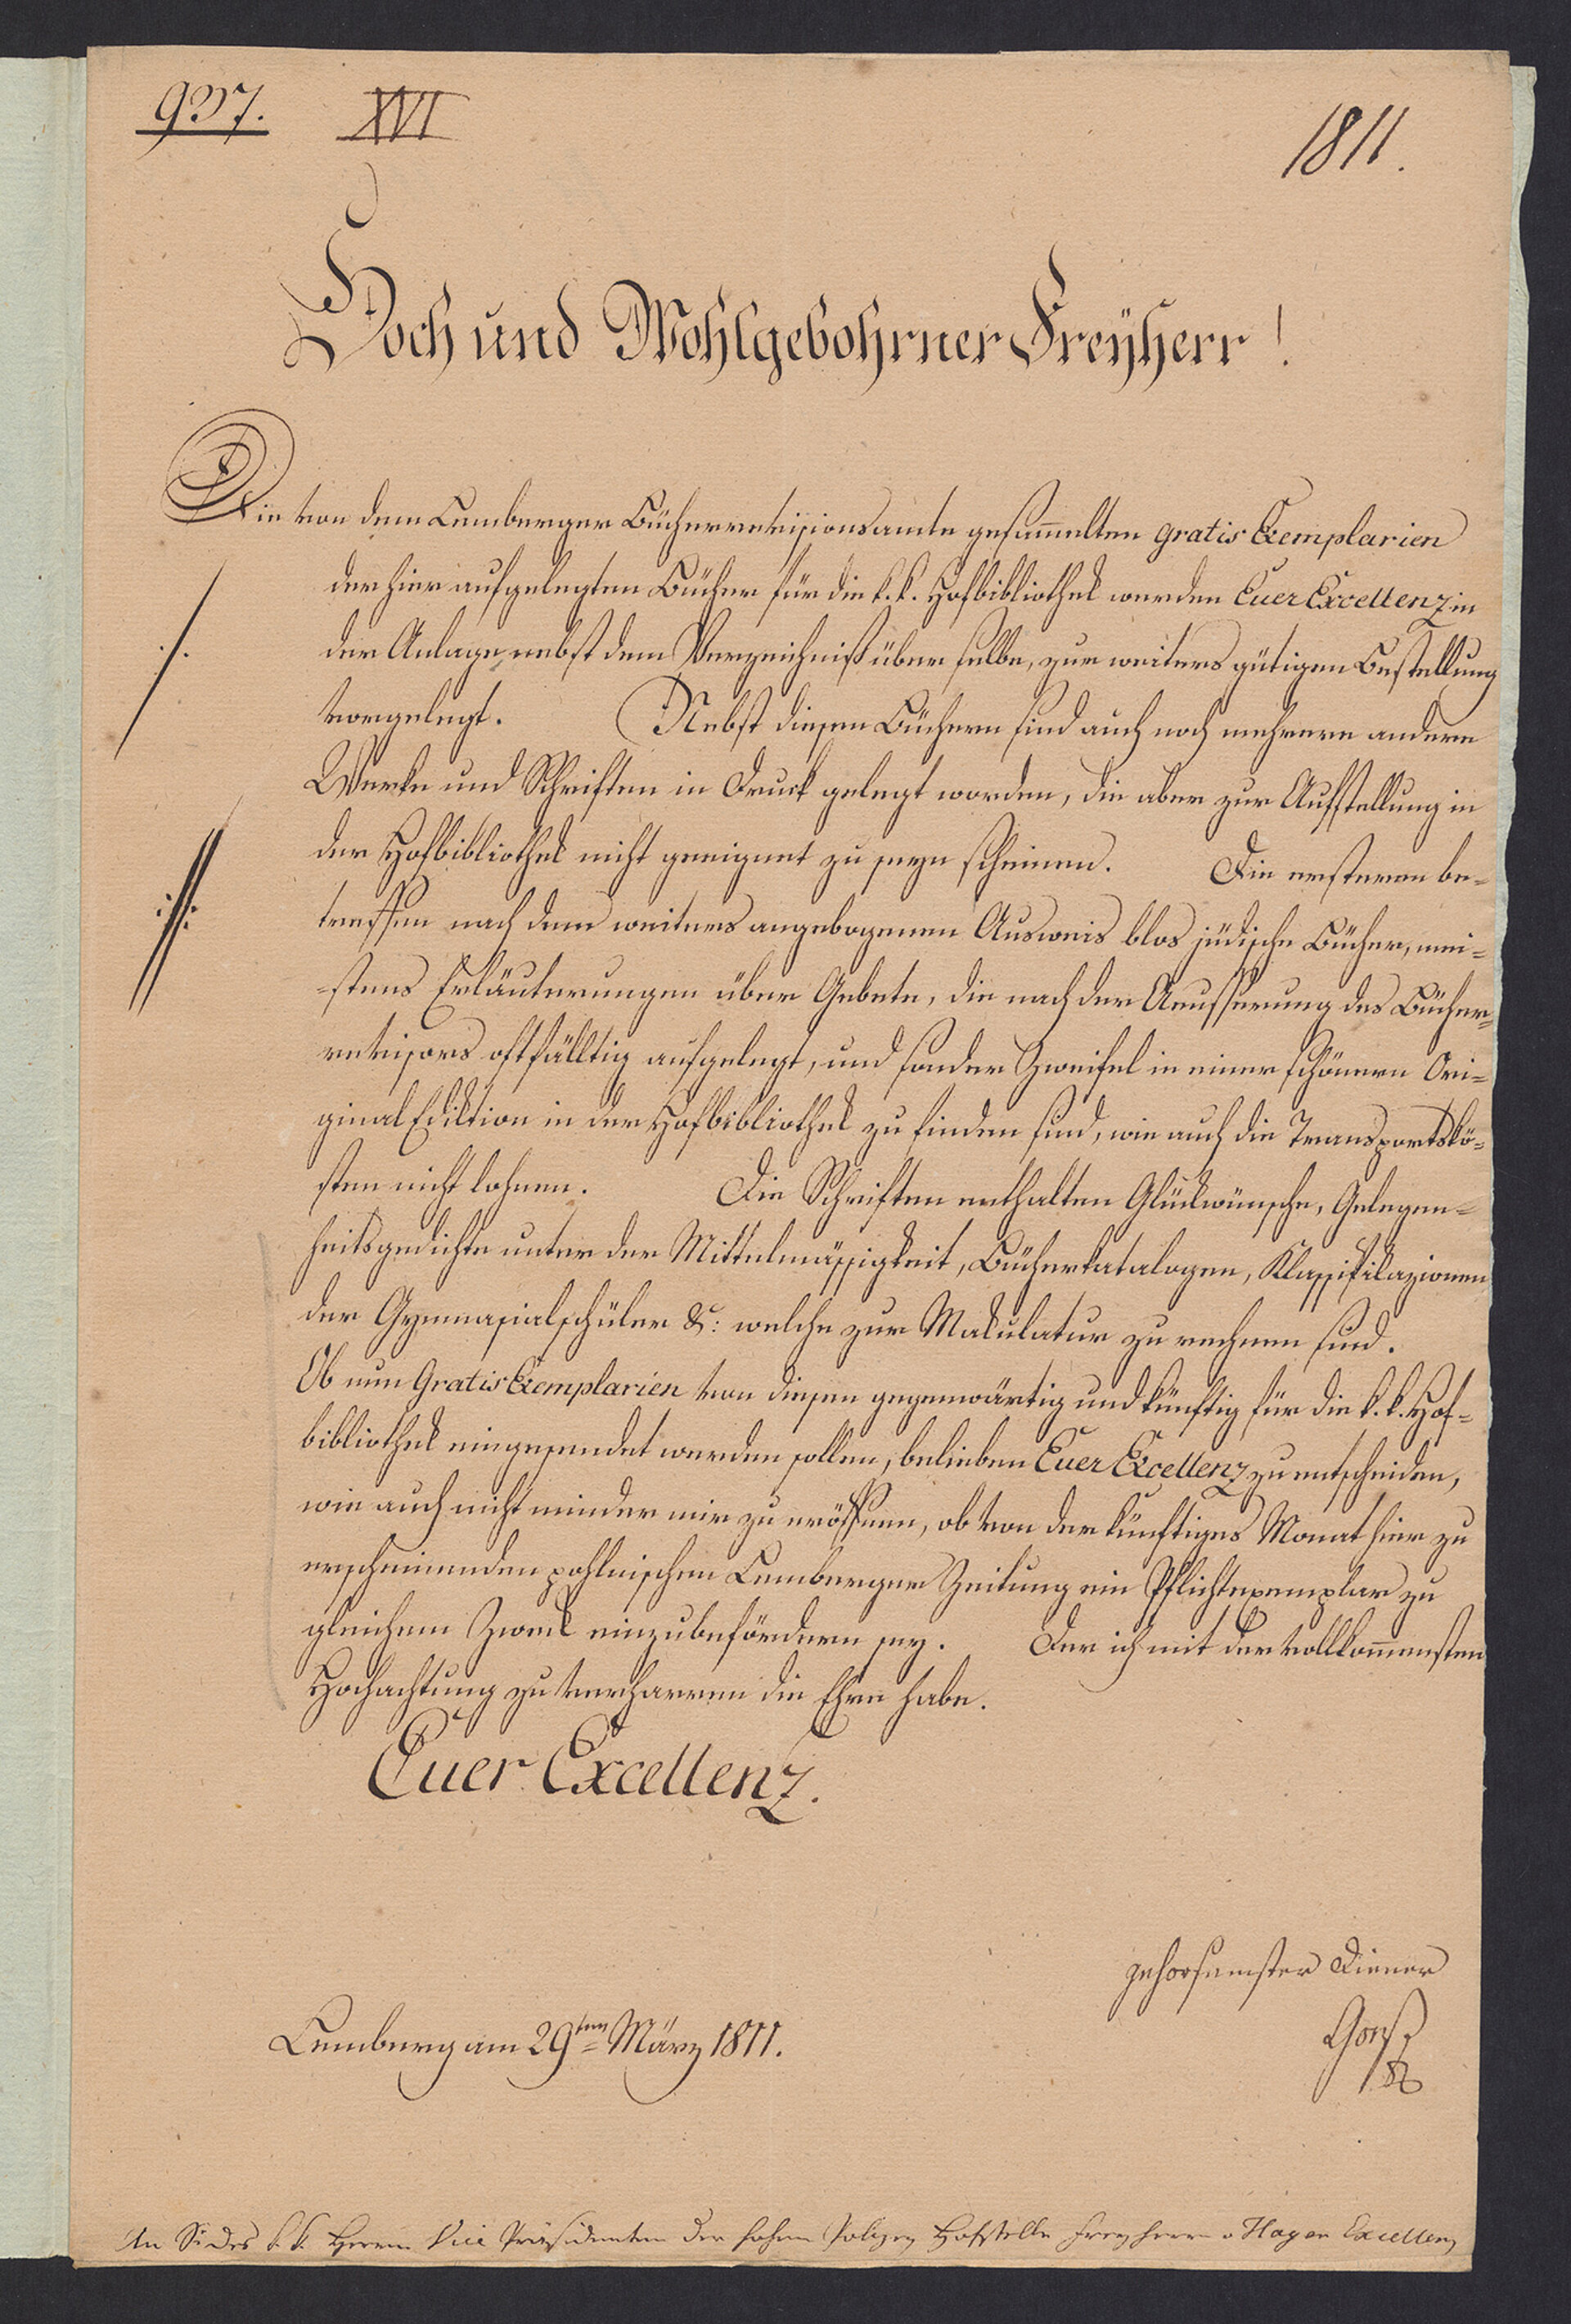 937. XVI
1811.
Hoch und Wohlgebohrner Freÿherr!
Die von dem Lemberger Bücherrevisionsamte gesam̅elten gratis Exemplarien
der hier aufgelegten Bücher für die k. k. Hofbibliothek werden Euer Excellenz in
./. der Anlage nebst dem Verzeichniß über selbe, zur weiters gütigen Bestellung
vorgelegt. Nebst diesen Büchern sind auch noch mehrere andere
Werke und Schriften in Druck gelegt worden, die aber zur Aufstellung in
der Hofbibliothek nicht geeignet zu seyn scheinen. Die ersteren be-
.//. treffen nach dem weiters angebogenen Ausweis blos jüdische Bücher, mei-
-stens Erläuterungen über Gebete, die nach der Aeusserung des Bücher-
revisors oftfälltig aufgelegt, und sonder Zweifel in einer schönern Ori-
ginal Ediktion in der Hofbibliothek zu finden sind, wie auch die Transportskö-
sten nicht lohnen. Die Schriften enthalten Glückwünsche, Gelegen-
heitsgedichte unter der Mittelmässigkeit, Bücherkatalogen, Klassifikazionen
der Gymnasialschüler &c: welche zur Makulatur zu rechnen sind.
Ob nun Gratis Exemplarien von diesen gegenwärtig und künftig für die k. k. Hof-
bibliothek eingesendet werden sollen, belieben Euer Excellenz zu entscheiden,
wie auch nicht minder mir zu eröffnen, ob von der künftiges Monat hier zu
erscheinenden pohlnischen Lemberger Zeitung ein Pflichtexemplar zu
gleichem Zweck einzubefördern sey. Der ich mit der vollkom̅ensten
Hochachtung zu verharren die Ehre habe.
Euer Excellenz.
gehorsamster Diener
Lemberg am 29ten März 1811.
An Se des k. k. Herrn Vice Präsidenten der hohen Polizey Hofstelle Freyherrn v Hager Excellenz